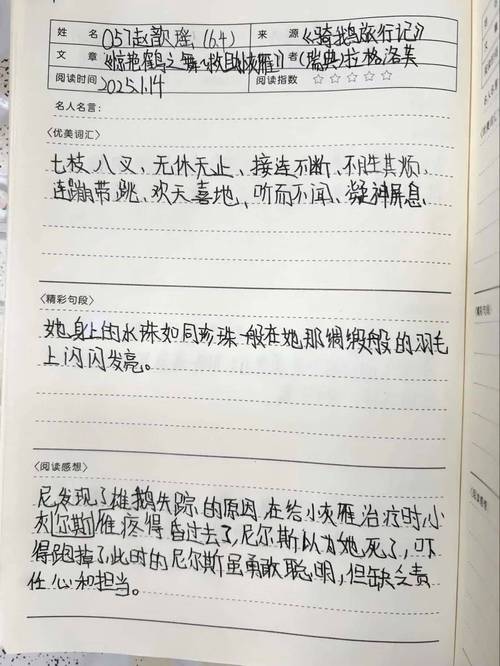 姓 名 057赵歆瑶(64) 来 源 《骑鹅旅行记》
文 章 《惊艳鹤之舞~救助灰雁》 者(瑞典)拉格洛芙
阅读时间 2025.1.14 阅读指数 ☆☆☆☆☆
名人名言:
〈优美词汇〉
七枝八叉、无休无止、接连不断、不胜其烦、
连蹦带跳、欢天喜地、听而不闻、凝神屏息
〈精彩句段〉
她身上的水珠如同珍珠一般在她那绸缎般的羽毛
上闪闪发亮。
〈阅读感想〉
尼发现了雄鹅失踪的原因,在给小灰雁治疗时,小
灰尔斯雁疼得昏过去了,尼尔斯以为她死了,吓
得跑掉了,此时的尼尔斯虽勇敢聪明,但缺乏责
任心和担当。